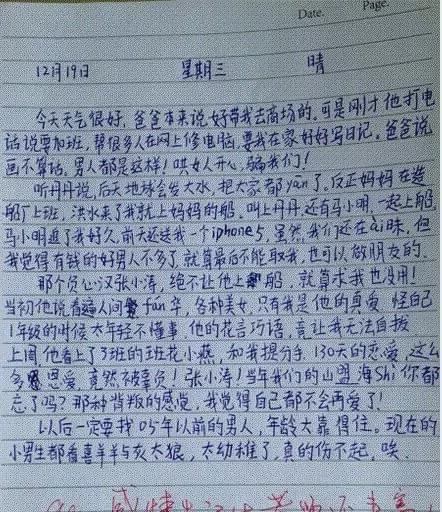 Date. Page.
12月19日 星期三 晴
今天天气很好,爸爸本来说好带我去商场的,可是刚才他打电
话说要加班,帮很多人在网上修电脑,要我在家好好写日记。爸爸说
画不算话,男人都是这样!哄女人开心,骗我们!
听丹丹说,后天地球会发大水,把大家都yān了,反正妈妈在造
船厂上班,洪水来了我就上妈妈的船。叫上丹丹,还有马小明,一起上船,
马小明追了我好久,前天还送我一个iphone5,虽然我们还在ài昧,但
我觉得有钱的好男人不多了,就算最后不能取我,也可以做朋友的。
那个负心汉张小涛,绝不让他上船,就算求我也没用!
当初他说看遍人间fán华,各种美女,只有我是他的真爱,怪自己
1年级的时候太年轻不懂事,他的花言巧语,竟让我无法自拔
上周他看上了3班的班花小燕,和我提分手,130天的恋爱,这么
多恩爱,竟然被辜负!张小涛!当年我们的山盟海Shì你都
忘了吗?那种背叛的感觉,我觉得自己都不会再爱了!
以后一定要找05年以前的男人,年龄大靠得住。现在的
小男生都看喜羊羊与灰太狼,太幼稚了,真的伤不起,唉